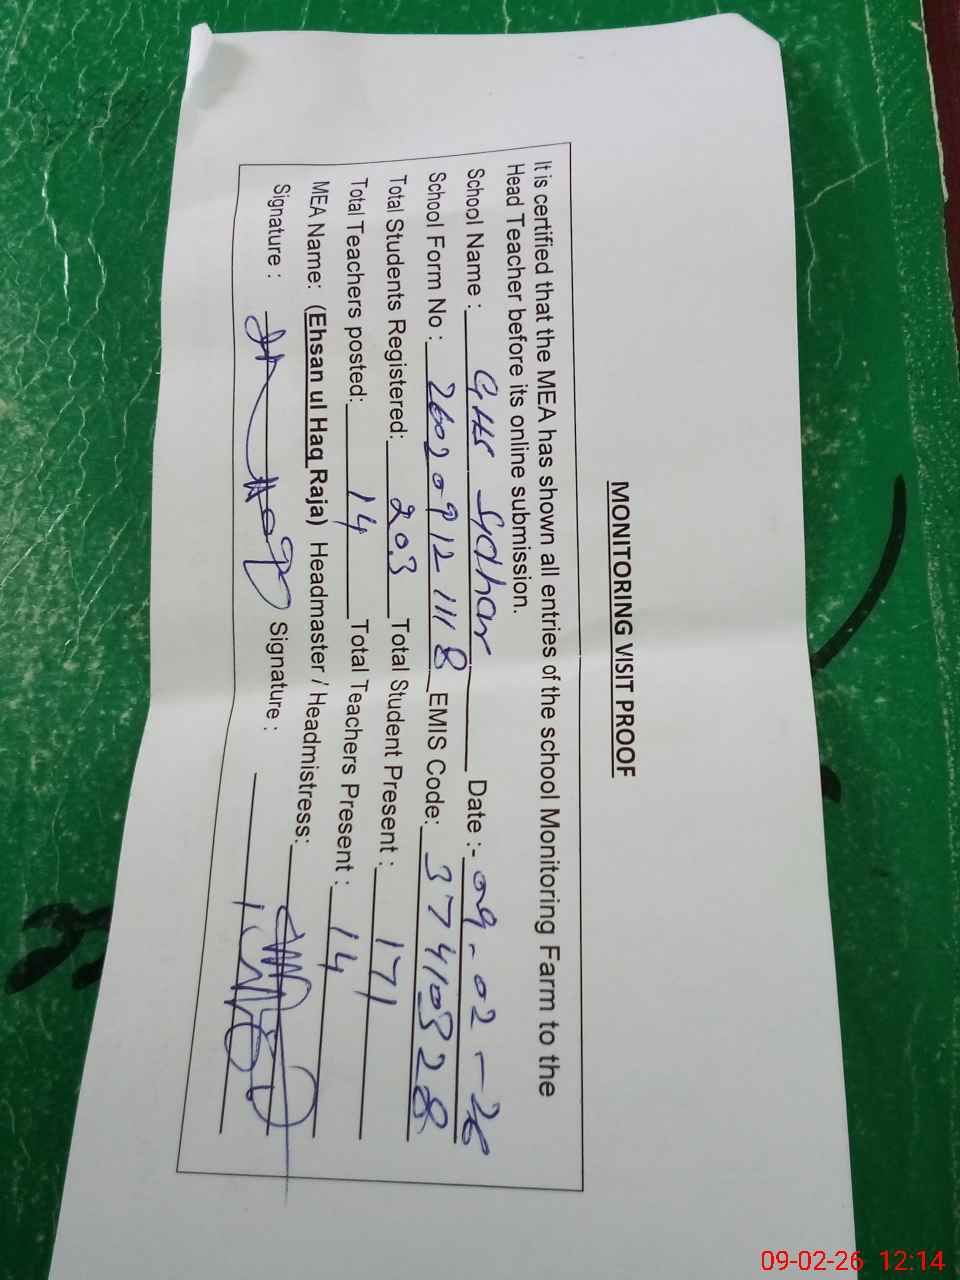 MONITORING VISIT PROOF
It is certified that the MEA has shown all entries of the school Monitoring Farm to the
Head Teacher before its online submission.
School Name : GHS Sydhar Date :- 09-02-26
School Form No : 2602 0912 1118 EMIS Code: 37410328
Total Students Registered: 203 Total Student Present : 171
Total Teachers posted: 14 Total Teachers Present : 14
MEA Name: (Ehsan ul Haq Raja) Headmaster / Headmistress:
Signature : Signature :
09-02-26 12:14